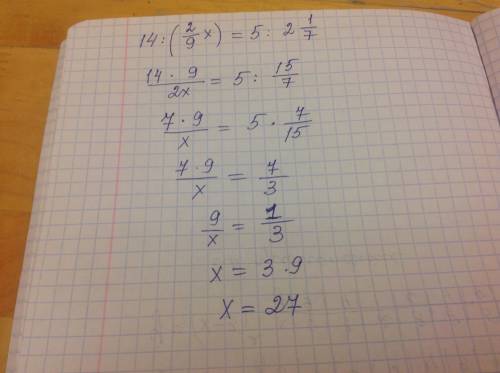 14 : (2/9 x) = 5 : 2 1/7
14 · 9 / 2x = 5 : 15/7
7 · 9 / x = 5 · 7/15
7 · 9 / x = 7/3
9/x = 1/3
x = 3 · 9
x = 27